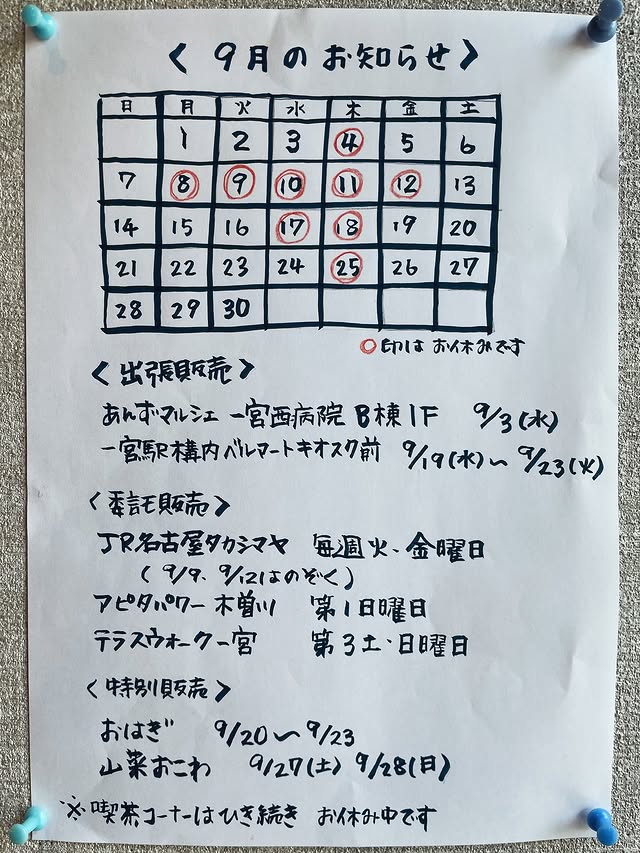 〈 9月のお知らせ 〉
日 月 火 水 木 金 土
1 2 3 4 5 6
7 8 9 10 11 12 13
14 15 16 17 18 19 20
21 22 23 24 25 26 27
28 29 30
○印は お休みです
〈 出張販売 〉
あんずマルシェ 一宮西病院 B棟1F 9/3(水)
一宮駅構内ベルマートキオスク前 9/19(水)〜9/23(火)
〈委託販売〉
JR名古屋タカシマヤ 毎週火、金曜日
(9/9、9/12はのぞく)
アピタパワー木曽川 第1日曜日
テラスウォーク一宮 第3土・日曜日
〈特別販売〉
おはぎ 9/20〜9/23
山菜おこわ 9/27(土) 9/28(日)
※喫茶コーナーはひき続き お休み中です